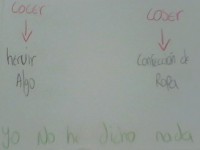 cocer
coser
hervir
Algo
Confección de
Ropa
yo no he dicho nada